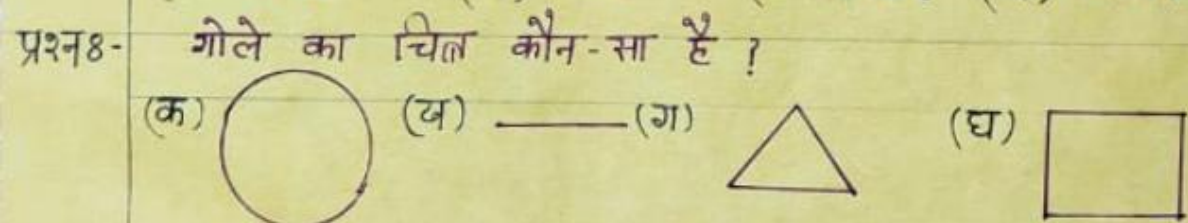 प्रश्न8- गोले का चित्र कौन-सा है ?
(क) (ख) (ग) (घ)